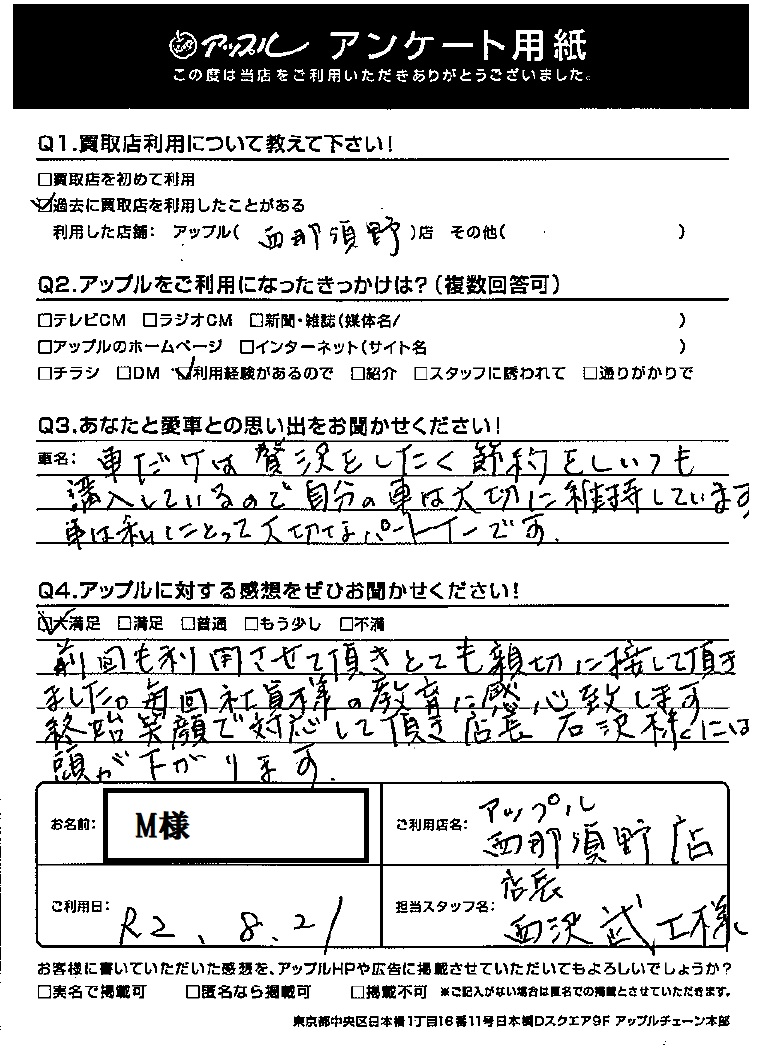 アップル アンケート用紙
この度は当店をご利用いただきありがとうございました。
Q1.買取店利用について教えて下さい!
□買取店を初めて利用
☑過去に買取店を利用したことがある
利用した店舗: アップル( 西那須野 )店 その他( )
Q2.アップルをご利用になったきっかけは?(複数回答可)
□テレビCM □ラジオCM □新聞・雑誌(媒体名/ )
□アップルのホームページ □インターネット(サイト名 )
□チラシ □DM ☑利用経験があるので □紹介 □スタッフに誘われて □通りがかりで
Q3.あなたと愛車との思い出をお聞かせください!
車名: 車だけは贅沢をしたく節約をしいつも
購入しているので自分の車は大切に維持しています
車は私にとって大切なパートナーです.
Q4.アップルに対する感想をぜひお聞かせください!
☑大満足 □満足 □普通 □もう少し □不満
前回も利用させて頂きとても親切に接して頂き
ました。毎回社員様の教育に感心致します
終始笑顔で対応して頂き店長 石沢様には
頭が下がります.
お名前: M様
ご利用店名: アップル
西那須野店
ご利用日: R2.8.21
担当スタッフ名: 店長
西沢 武 様
お客様に書いていただいた感想を、アップルHPや広告に掲載させていただいてもよろしいでしょうか?
□実名で掲載可 □匿名なら掲載可 □掲載不可 ※ご記入がない場合は匿名での掲載とさせていただきます。
東京都中央区日本橋1丁目16番11号日本橋Dスクエア9F アップルチェーン本部